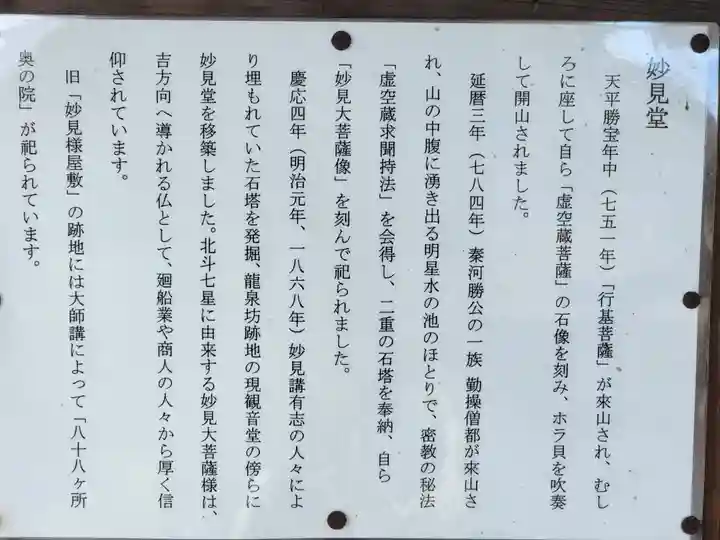 妙見堂
天平勝宝年中（七五一年）「行基菩薩」が來山され、むし
ろに座して自ら「虚空蔵菩薩」の石像を刻み、ホラ貝を吹奏
して開山されました。
延暦三年（七八四年）秦河勝公の一族 勤操僧都が來山さ
れ、山の中腹に湧き出る明星水の池のほとりで、密教の秘法
「虚空蔵求聞持法」を会得し、二重の石塔を奉納、自ら
「妙見大菩薩像」を刻んで祀られました。
慶応四年（明治元年、一八六八年）妙見講有志の人々によ
り埋もれていた石塔を発掘、龍泉坊跡地の現観音堂の傍らに
妙見堂を移築しました。北斗七星に由来する妙見大菩薩様は、
吉方向へ導かれる仏として、廻船業や商人の人々から厚く信
仰されています。
旧「妙見様屋敷」の跡地には大師講によって「八十八ヶ所
奥の院」が祀られています。